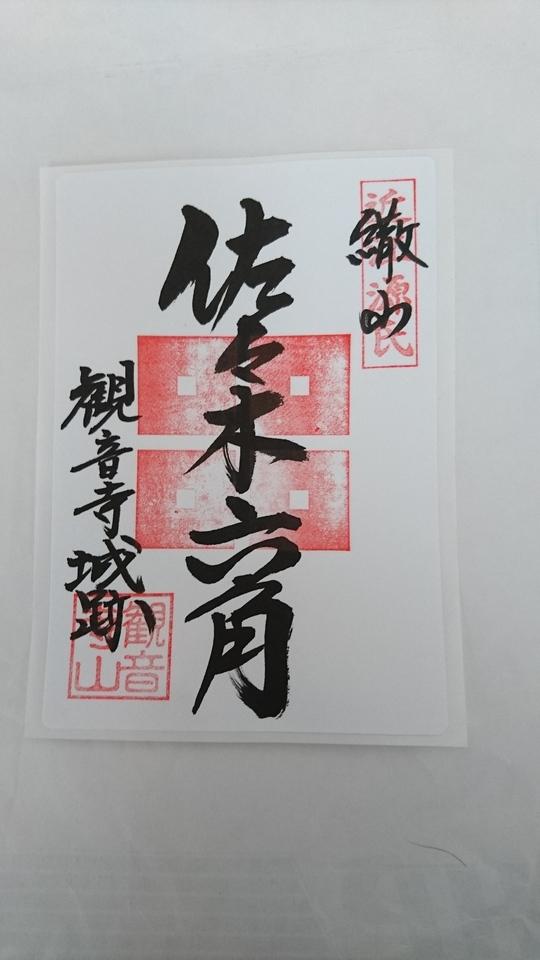 繖山
近江源氏
佐々木六角
観音寺城跡
観音
寺山